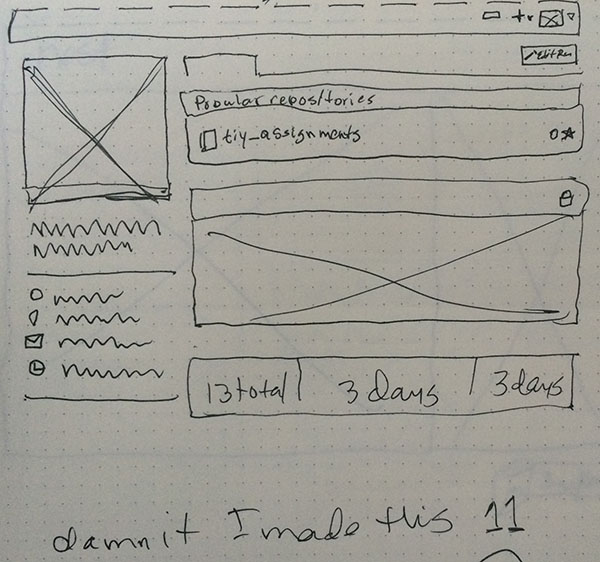 Popular repositories
tiy_assignments
0
13 total
3 days
3 days
damnit I made this 11